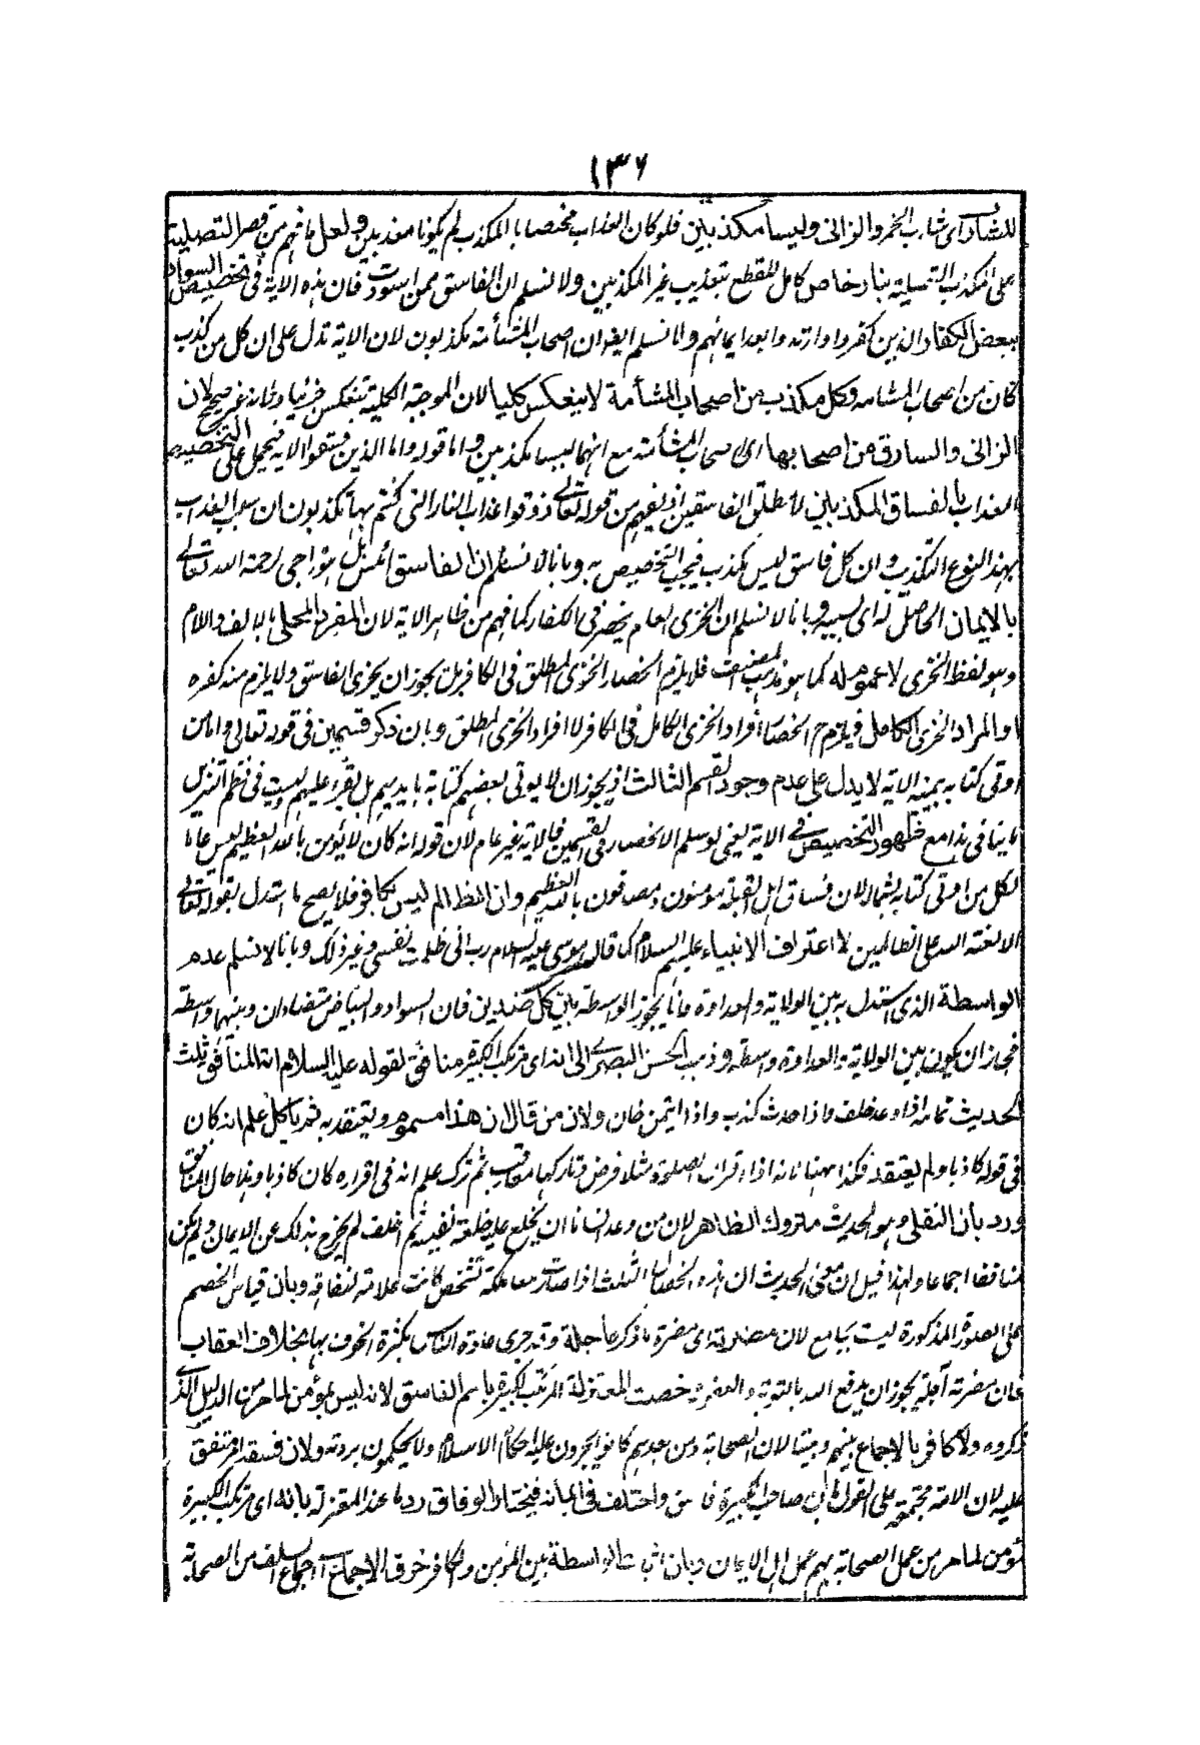 ١٣٦
للشارب اى شارب الخمر والزانى وليسا مكذبين فلو كان العذاب مختصا بالمكذب لم يكونا معذبين ولعل ما فهم من قصر التصلية
على المكذب التصلية بنار خاص كامل للقطع بتعذيب غير المكذبين ولا نسلم ان الفاسق ممن اسودت فان هذه الاية فى تخصيص السواد
ببعض الكفار الذين كفروا وارتدوا بعد ايمانهم ولا نسلم ايضا ان اصحاب المشأمة مكذبون لان الاية تدل على ان كل من كذب
كان من اصحاب المشأمة وكل مكذب من اصحاب المشأمة لا ينعكس كليا لان الموجبة الكلية تنعكس جزئيا وثانه غير صحيح لان
الزانى والسارق من اصحابها اى اصحاب المشأمة مع انهما ليسا مكذبين واما قوله واما الذين فسقوا الاية فيحمل على التخصيص
العذاب بالفساق المكذبين لا مطلق الفاسقين اذ يفهم من قوله تعالى ذوقوا عذاب النار التى كنتم بها تكذبون ان سبب العذاب
بهذا النوع التكذيب وان كل فاسق ليس بمكذب فيجب التخصيص به وبانا لا نسلم ان الفاسق آئس بل هو راجى رحمة الله تعالى
بالايمان الحاصل له اى لسببه وبانا لا نسلم ان الخزى العام ينحصر فى الكفار كما فهم من ظاهر الاية لان المفرد المحلى بالالف واللام
وهو لفظ الخزى لا عموم له كما هو مذهب المصنف فلا يلزم انحصار الخزى المطلق فى الكافر بل يجوز ان يخزى الفاسق ولا يلزم منه كفره
او المراد الخزى الكامل فيلزم ح انحصار افراد الخزى الكامل فى الكافر لا افراد الخزى المطلق وبان ذكر قسمين فى قوله تعالى واما من
اوتى كتابه بيمينه الاية لا يدل على عدم وجود القسم الثالث اذ يجوز ان لا يوتى بعضهم كتابه بايديهم بل يقرء عليهم وليست فى نظم التنزيل
ما ينافى هذا مع ظهور التخصيص فى الاية يعنى لو سلم الانحصار فى القسمين فالاية غير عام لان قوله انه كان لا يؤمن بالله العظيم ليس عاما
لكل من اوتى كتابه بشماله لان فساق اهل القبلة مومنون ومصدقون بالله العظيم وان الظالم ليس بكافر فلا يصح ما استدل بقوله تعالى
الا لعنة الله على الظالمين لاعتراف الانبياء عليهم السلام كما قال موسى عليه السلام رب انى ظلمت نفسى وغير ذلك وبانا لا نسلم عدم
الواسطة الذى استدل به بين الولاية والعداوة فانا يجوز الواسطة بين كل ضدين فان السواد والبياض متضادان وبينهما واسطة
فيجوز ان يكون بين الولاية والعداوة واسطة وذهب الحسن البصرى الى انه اى مرتكب الكبيرة منافق لقوله عليه السلام اية المنافق ثلث
الحديث تمامه اذا وعد خلف واذا حدث كذب واذا ايتمن خان ولان من قال ان هذا مسموم ويعتقد به ثم ياكل علم انه كان
فى قوله كاذبا ولم يعتقد فكذا ههنا فانه اذا اقر ان الصلوة مثلا فرض وتاركها معاقب ثم ترك علم انه فى اقراره كان كاذبا وهذا حال المنافق
ورد بان النقلى وهو الحديث متروك الظاهر لان من وعد انسانا ان يخلع عليه خلعة نفيسة ثم اخلف لم يخرج بذلك عن الايمان ولم يكن
منافقا اجماعا ولهذا قيل ان معنى الحديث ان هذه الخصال الثلث اذا صارت معا ملكة لشخص كانت علامة لنفاقه وبان قياس الخصم
على الصورة المذكورة ليست بجامع لان مضارته اى مضرة ما ذكر عاجلة وقد جرى عادة الناس بكثرة الخوف بها بخلاف العقاب
فان مضرته آجلة يجوز ان يدفع الله بالتوبة والعفو وخصت المعتزلة المرتكب الكبيرة باسم الفاسق لانه ليس بمؤمن لما مر من الدليل الذى
ذكروه ولا كافر بالاجماع بينهم وبيننا لان الصحابة ومن بعدهم كانوا يجرون عليه احكام الاسلام ولا يحكمون بردته ولان فسقه امر متفق
عليه لان الامة مجتمعة على القول بان صاحب الكبيرة فاسق واختلف فى ايمانه فيختار الوفاق ردما عند المعتزلة بانه اى مرتكب الكبيرة
مؤمن لما مر من عمل الصحابة بهم عمل اهل الايمان وبان اثبات الواسطة بين المؤمن والكافر خرق الاجماع اى اجماع السلف من الصحابة